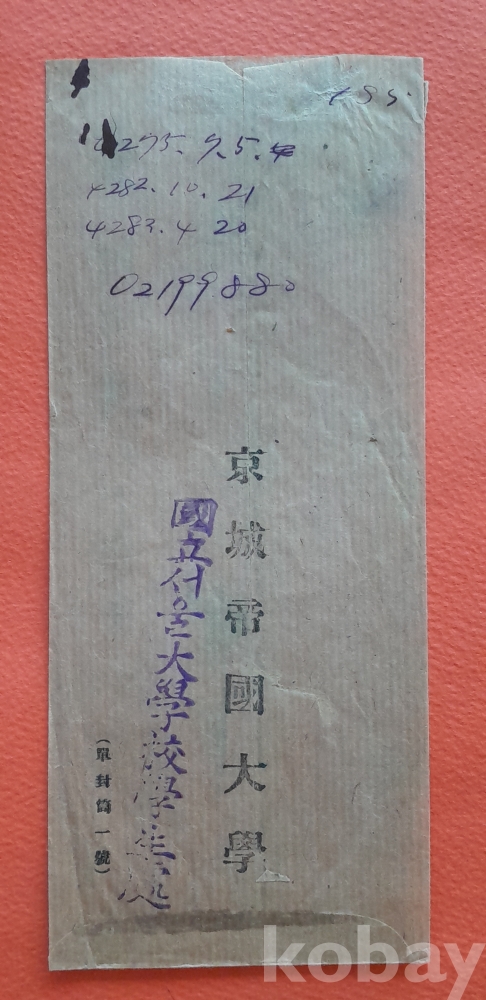 4275. 9. 5. 4
4282. 10. 21
4283. 4 20
02199880
京城帝國大學
國立서울大學校學生処
(單封筒一號)
kobay